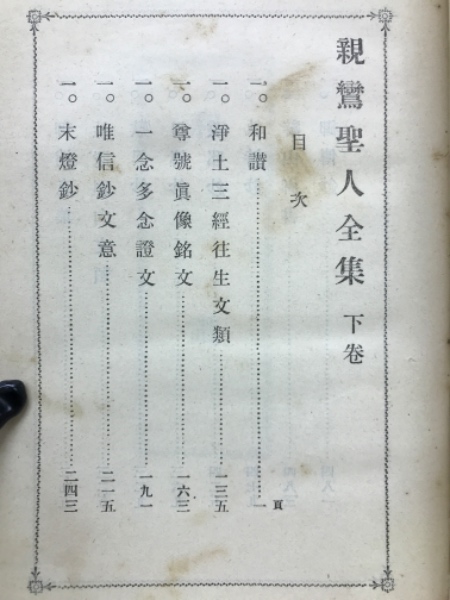 親鸞聖人全集 下卷
目次
頁
一〇和讃……一
一〇淨土三經往生文類……一三五
一〇尊號眞像銘文……一六三
一〇一念多念證文……一九一
一〇唯信鈔文意……二一五
一〇末燈鈔……二四三